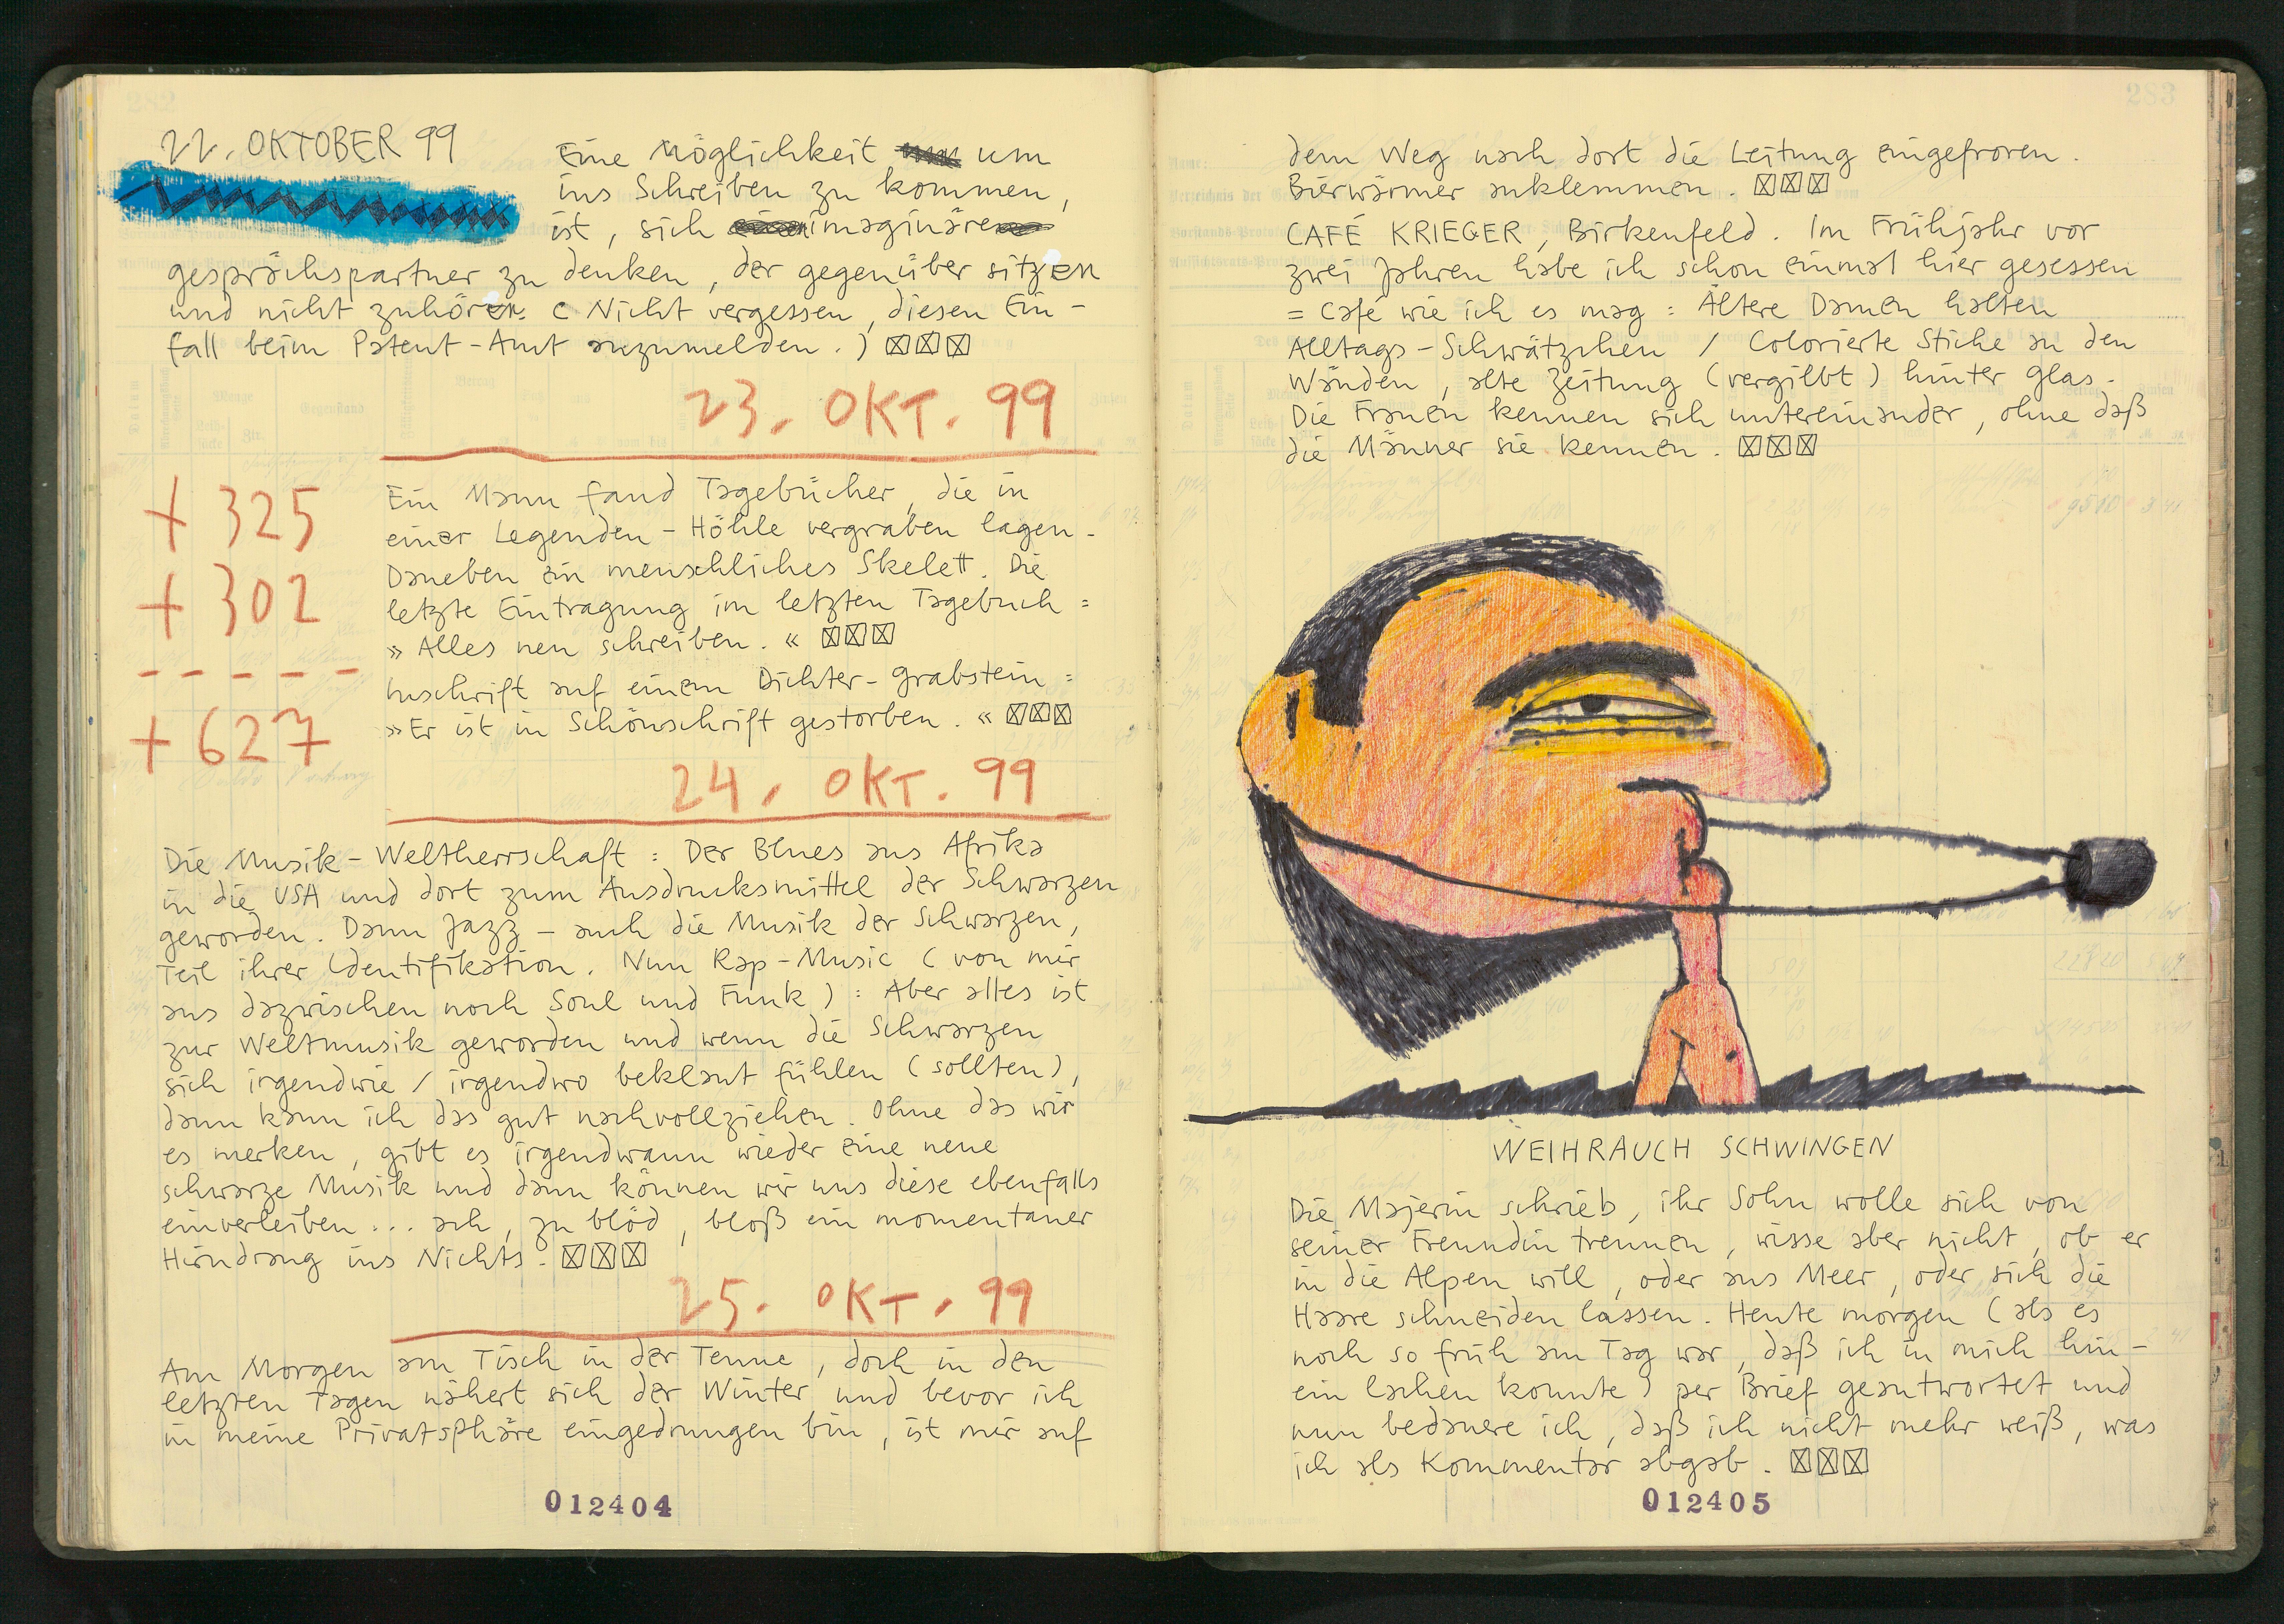 282
22. OKTOBER 99
Eine Möglichkeit um
ins Schreiben zu kommen,
ist, sich imaginäre
gesprächspartner zu denken, der gegenüber sitzen
und nicht zuhören. (Nicht vergessen, diesen Ein-
fall beim Patent-Amt anzumelden.) ☒☒☒
23. OKT. 99
+ 325
+ 302
- - - - -
+ 627
Ein Mann fand Tagebücher, die in
einer Legenden-Höhle vergraben lagen.
Daneben ein menschliches Skelett. Die
letzte Eintragung im letzten Tagebuch =
»Alles neu schreiben.« ☒☒☒
Inschrift auf einem Dichter-Grabstein =
»Er ist in Schönschrift gestorben.« ☒☒☒
24. OKT. 99
Die Musik-Weltherrschaft: Der Blues aus Afrika
in die USA und dort zum Ausdrucksmittel der Schwarzen
geworden. Dann Jazz – auch die Musik der Schwarzen,
Teil ihrer Identifikation. Nun Rap-Music (von mir
aus dazwischen noch Soul und Funk): Aber alles ist
zur Weltmusik geworden und wenn die Schwarzen
sich irgendwie / irgendwo beklaut fühlen (sollten),
dann kann ich das gut nachvollziehen. Ohne das wir
es merken, gibt es irgendwann wieder eine neue
schwarze Musik und dann können wir uns diese ebenfalls
einverleiben... ach, zu blöd, bloß ein momentaner
Hirndrang ins Nichts. ☒☒☒
25. OKT. 99
Am Morgen am Tisch in der Tenne, doch in den
letzten Tagen nähert sich der Winter und bevor ich
in meine Privatsphäre eingedrungen bin, ist mir auf
012404
283
dem Weg nach dort die Leitung eingefroren.
Bierwärmer anklemmen. ☒☒☒
CAFÉ KRIEGER, Birkenfeld. Im Frühjahr vor
zwei Jahren habe ich schon einmal hier gesessen
= Café wie ich es mag: Ältere Damen halten
Alltags-Schwätzchen / Colorierte Stiche an den
Wänden, alte Zeitung (vergilbt) hinter Glas.
Die Frauen kennen sich untereinander, ohne daß
die Männer sie kennen. ☒☒☒
WEIHRAUCH SCHWINGEN
Die Majerin schrieb, ihr Sohn wolle sich von
seiner Freundin trennen, wisse aber nicht, ob er
in die Alpen will, oder ans Meer, oder sich die
Haare schneiden lassen. Heute morgen (als es
noch so früh am Tag war, daß ich in mich hin-
ein lachen konnte) per Brief geantwortet und
nun bedauere ich, daß ich nicht mehr weiß, was
ich als Kommentar abgab. ☒☒☒
012405